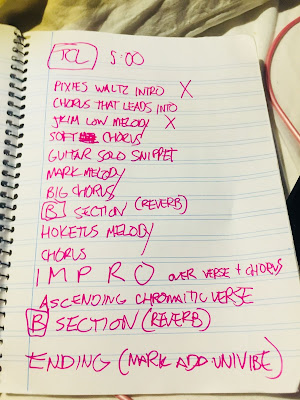 TCL 5:00
PIXIES WALTZ INTRO X
CHORUS THAT LEADS INTO
SKIM LOW MELODY X
SOFT CHORUS
GUITAR SOLO SNIPPET
MARK MELODY
BIG CHORUS
B SECTION (REVERB)
HOKETUS MELODY
CHORUS
IMPRO OVER VERSE + CHORUS
ASCENDING CHROMATIC VERSE
B SECTION (REVERB)
ENDING (MARK ADD UNIVIBE)